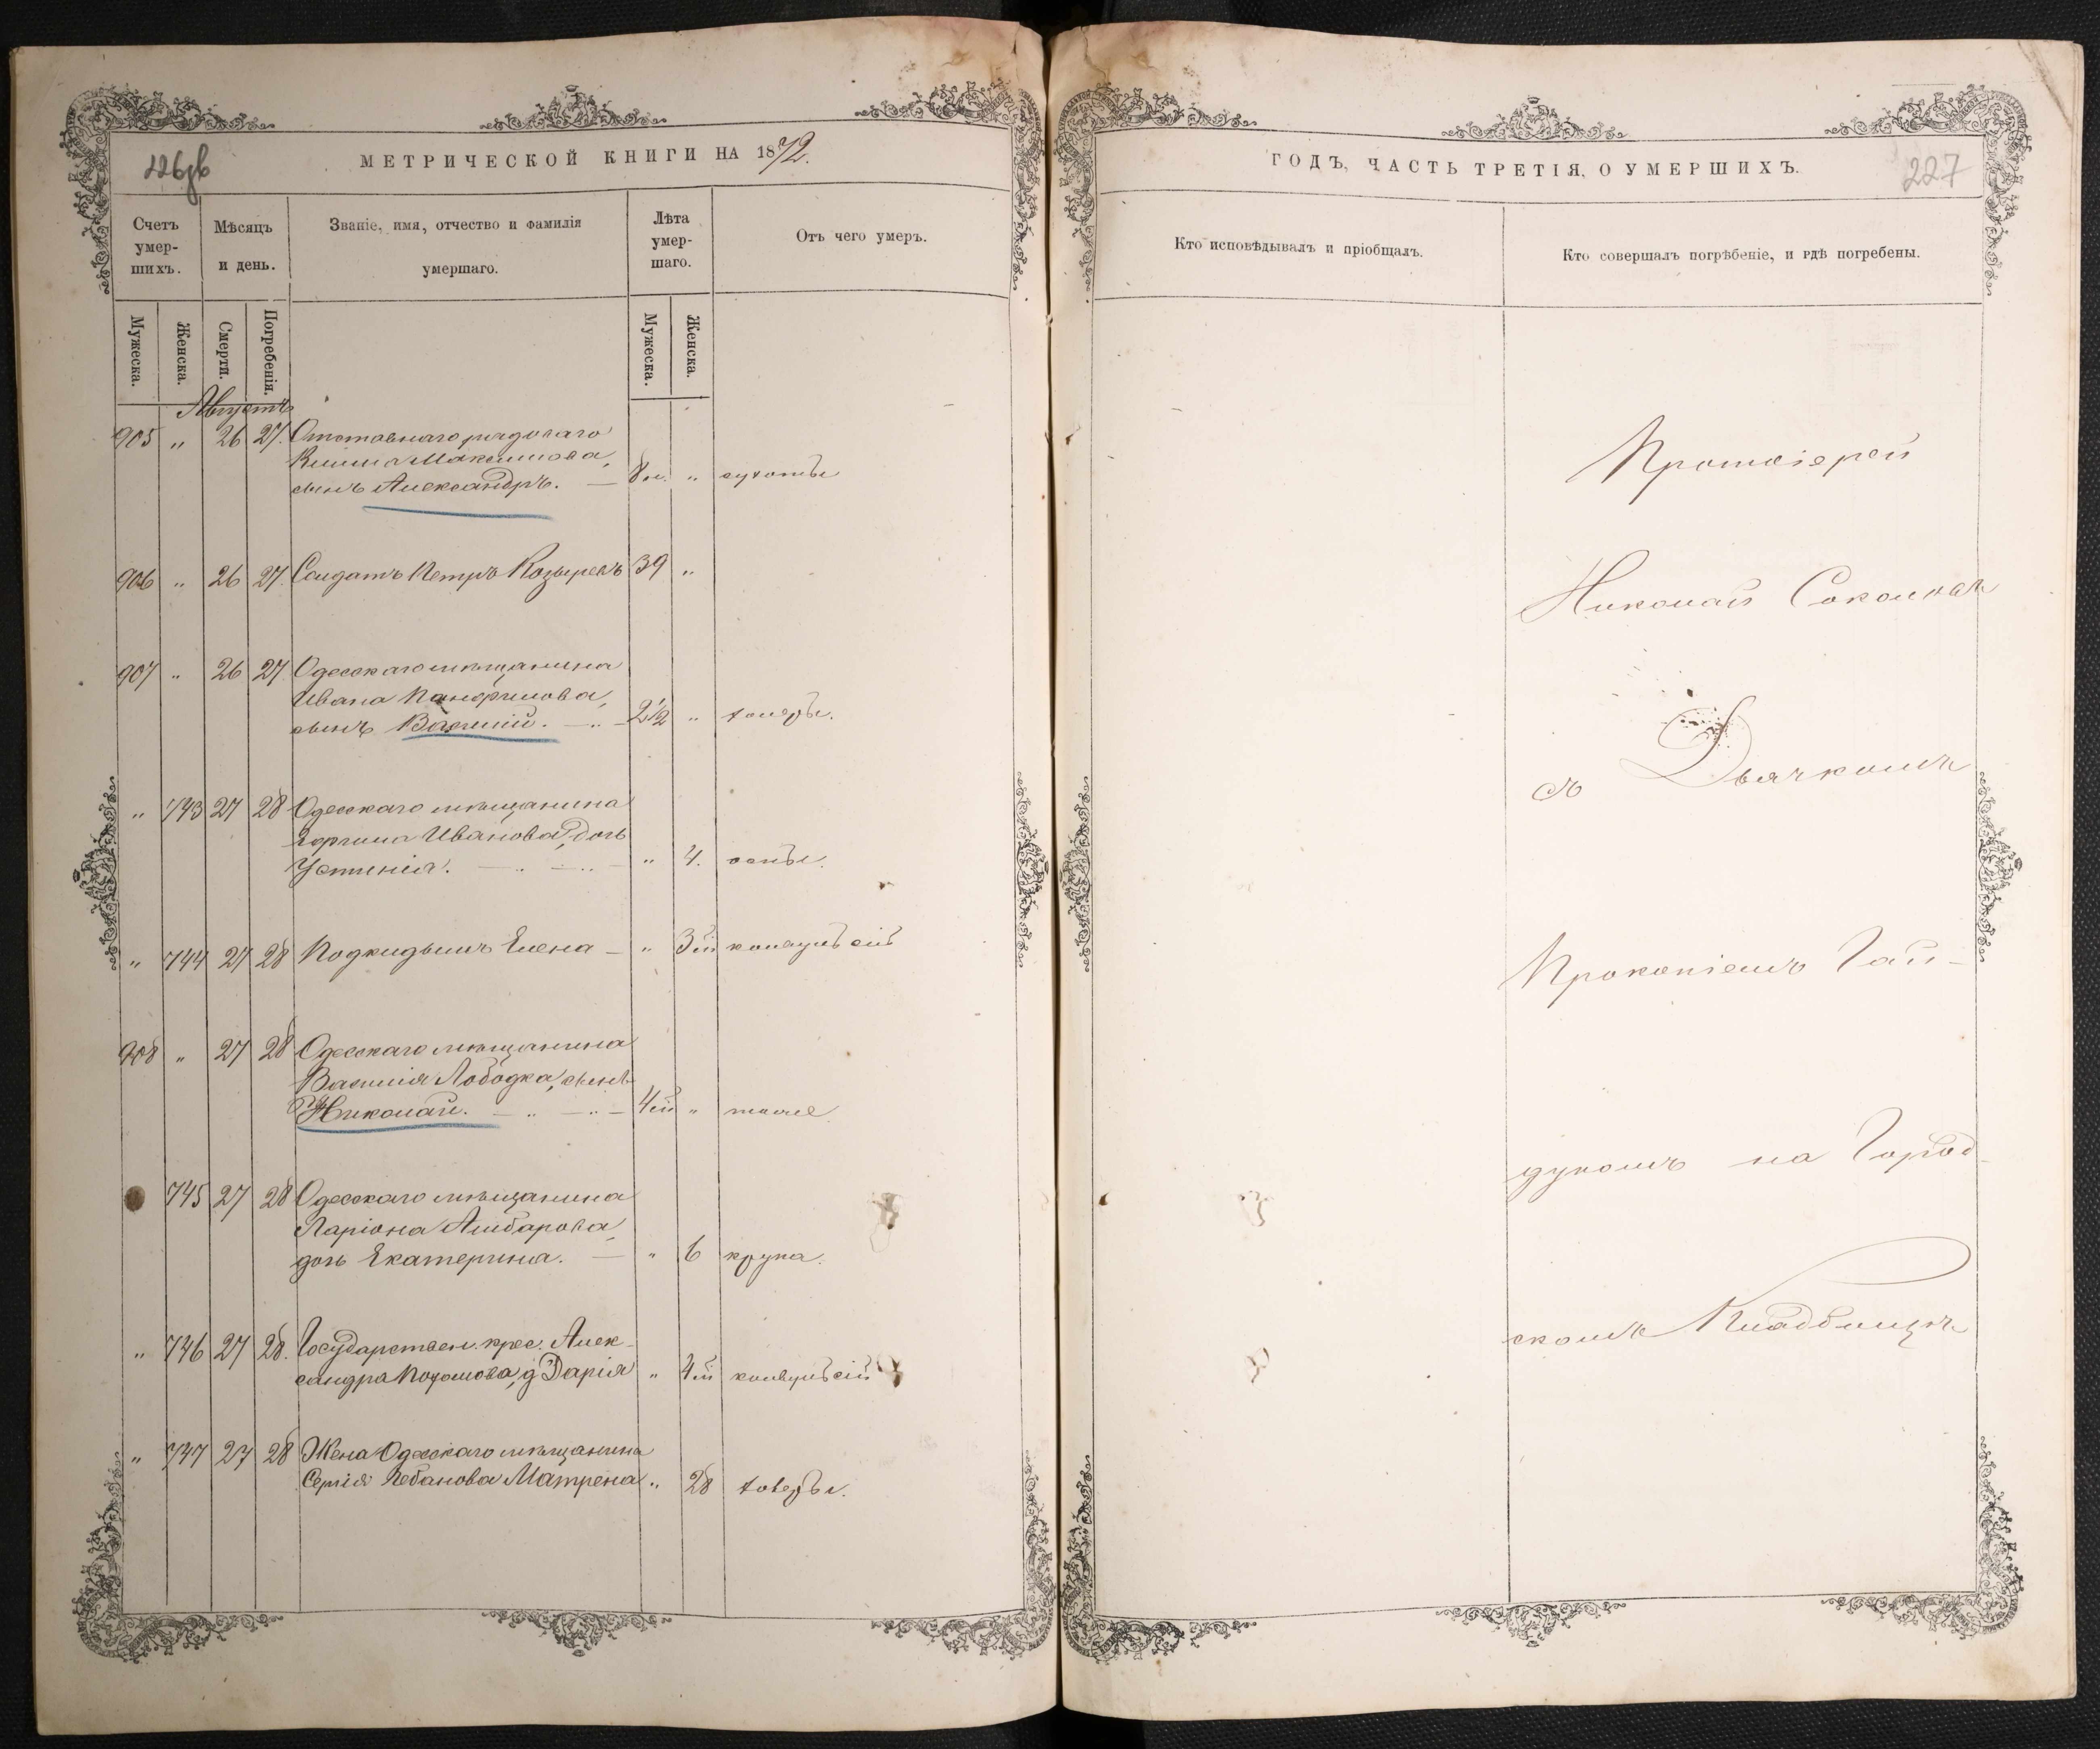 226зв
МЕТРИЧЕСКОЙ КНИГИ НА 1872.
Счетъ умер-шихъ.
Мѣсяцъ и день.
Званіе, имя, отчество и фамилія умершаго.
Лѣта умер-шаго.
Отъ чего умеръ.
Мужеска.
Женска.
Смерти.
Погребенія.
Мужеска.
Женска.
Августъ
905 „ 26 27. Отставнаго рядоваго
Максимова,
сынъ Александръ. — 8 м. „ сухоты
906 „ 26 27. Солдатъ Петръ Козыревъ 39 „
907 „ 26 27. Одесскаго мѣщанина
Ивана Панфилова,
сынъ Василій. — „ — 2½ „ холеры.
„ 743 27 28 Одесскаго мѣщанина
Иванова, дочь
Устинія. — „ — „ — „ 4. оспы.
„ 744 27 28 Подкидышъ Елена — „ 3 м конвульсій
908 „ 27 28 Одесскаго мѣщанина
Василія Лободка, сынъ
Николай. — „ — „ — 4 м „ тоже
745 27 28 Одесскаго мѣщанина
Ларіона Амбарова,
дочь Екатерина. — „ 6 крупа.
„ 746 27 28. Государствен. крес. Алек-
сандра д. Дарія „ 4 м конвульсій
„ 747 27 28 Жена Одесскаго мѣщанина
Сергія Чебанова Матрена „ 28 холеры.
ГОДЪ, ЧАСТЬ ТРЕТІЯ, О УМЕРШИХЪ.
227
Кто исповѣдывалъ и пріобщалъ.
Кто совершалъ погрѣбеніе, и гдѣ погребены.
Протоіерей
Николай Соколовъ
съ Дьячкомъ
Прокопіемъ Гай-
дукомъ на Город-
скомъ Кладбищѣ